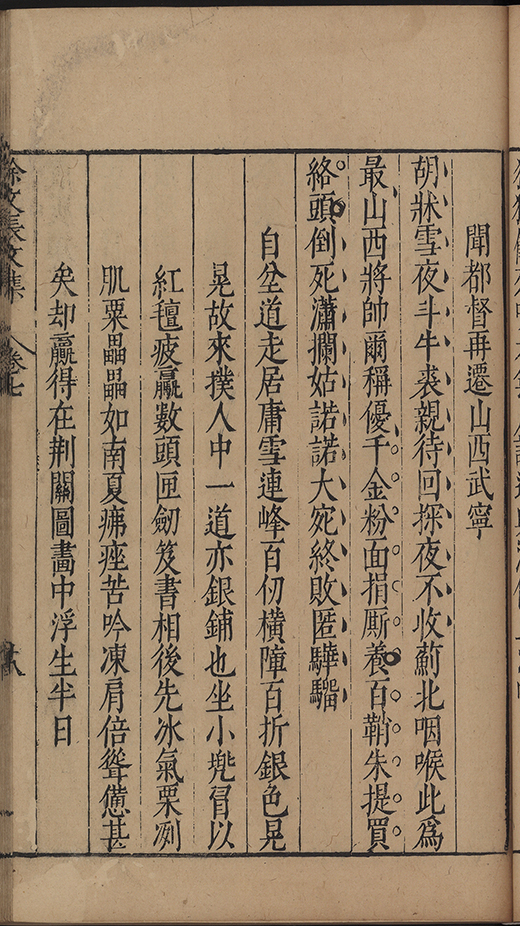 聞都督再遷山西武寧
胡牀雪夜斗牛裘親待回探夜不收薊北咽喉此爲
最山西將帥爾稱優千金粉面捐厮養百鞘朱提買
絡頭倒死瀟攔姑諾諾大宛終敗匿驊騮
自坌道走居庸雪連峰百仞橫障百折銀色晃
晃故來撲人中一道亦銀鋪也坐小兠冐以
紅氊疲羸數頭匣劒笈書相後先冰氣栗冽
肌粟畾畾如南夏疿痤苦吟凍肩倍聳憊甚
矣却羸得在荆關圖畵中浮生半日
徐文長文集
卷七